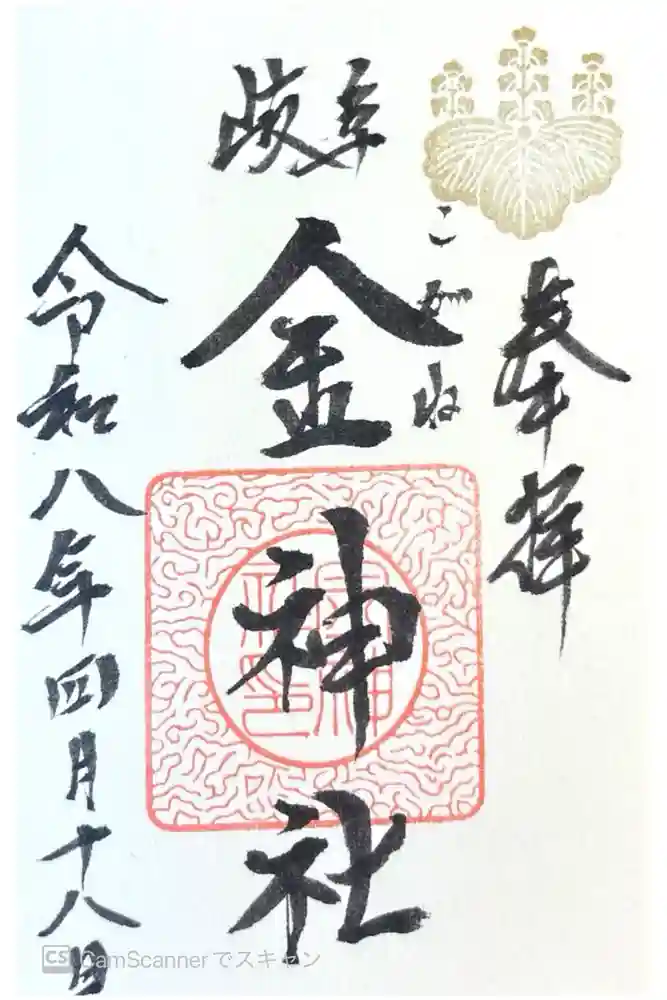 奉拝
岐阜
こがね
金神社
令和八年四月十八日
CS CamScannerでスキャン